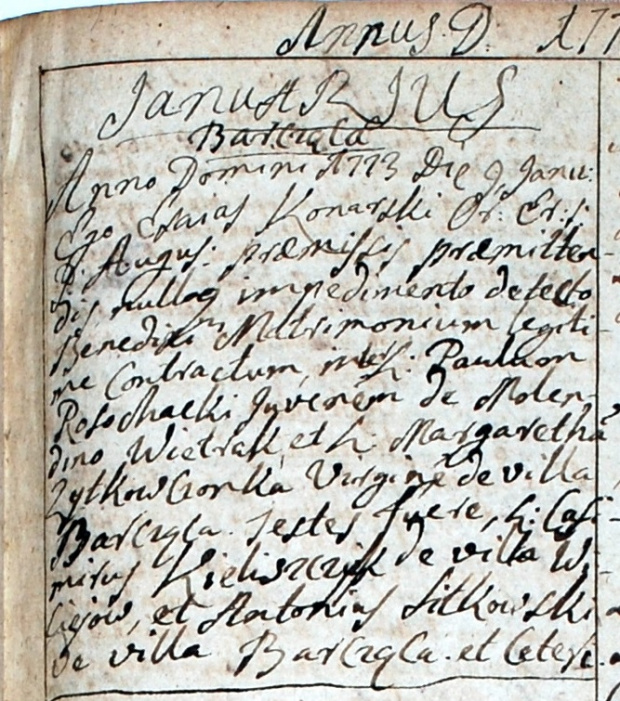 Annus D. 177
JanuARIUS
Barcząca
Anno Domini 1773 Die 9 Janu:
Ego Esaias Konarski Or: Er: S:
P. Augus: præmissis præmitten-
dis nulloq impedimento detecto
Benedixi Matrimonium legiti-
me Contractum, inter L: Paulum
Rosochacki Juvenem de Molen-
dino Wietrak, et L: Margarethã
Zytkowcionka Virginẽ de villa
Barcząca. Testes fuere, L: Casi-
mirus Kieliszczyk de villa W
ciejow, et Antonius Sitkowski
de villa Barcząca. et Ceteri.